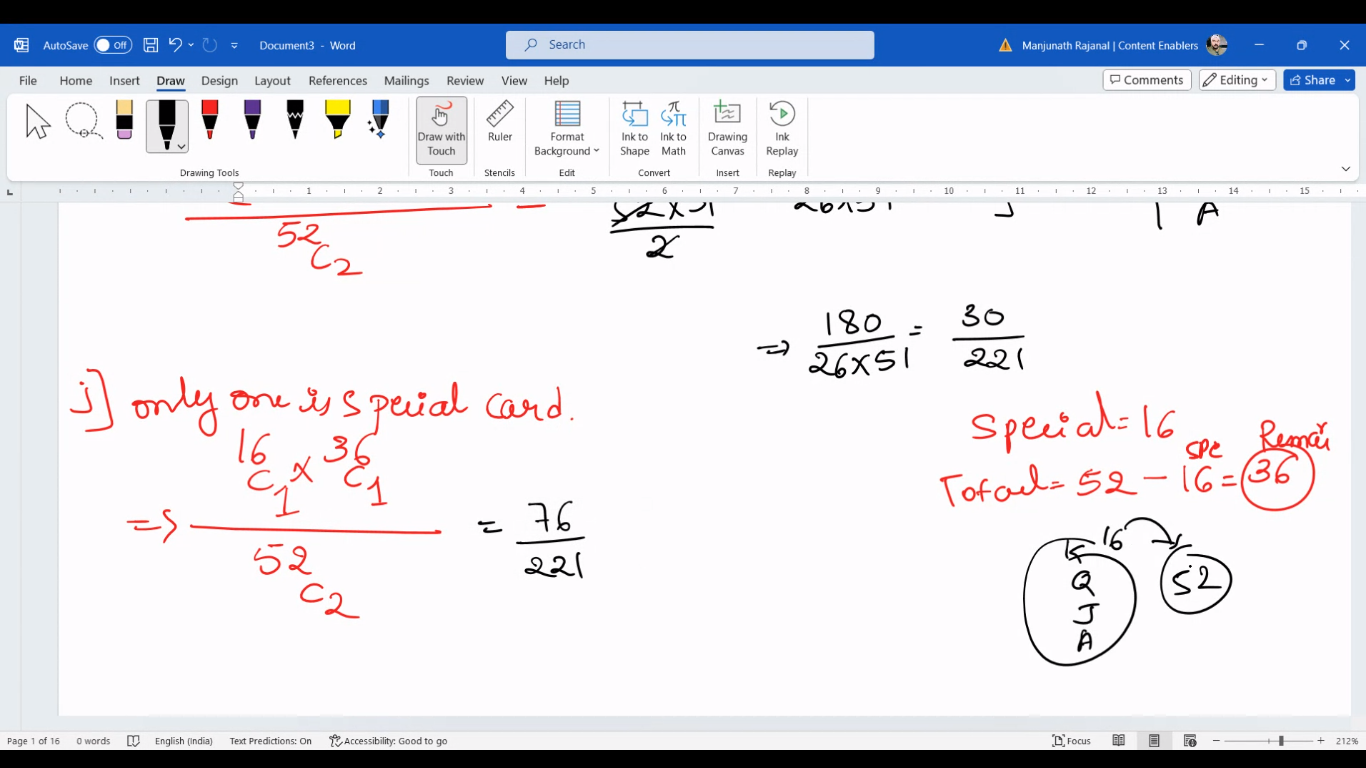 AutoSave Off Document3 - Word Search Manjunath Rajanal | Content Enablers
File Home Insert Draw Design Layout References Mailings Review View Help Comments Editing Share
Draw with Touch Ruler Format Background Ink to Shape Ink to Math Drawing Canvas Ink Replay
Drawing Tools Touch Stencils Edit Convert Insert Replay
1 2 3 4 5 6 7 8 9 10 11 12 13 14 15
52C2
52x51
2
26x51
J
1 A
=> 180 / 26x51 = 30 / 221
j] only one is special card.
=> 16C1 x 36C1 / 52C2 = 76 / 221
Special = 16
Total = 52 - 16 = 36
spe
K 16 52
Q
J
A
Page 1 of 16 0 words English (India) Text Predictions: On Accessibility: Good to go Focus 212%